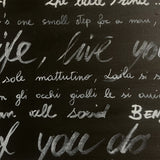 's one small step for a man,
ife, live you
sole mattutino, Laola si s
gli occhi gialli le si avvi
an well sound BE
f you do